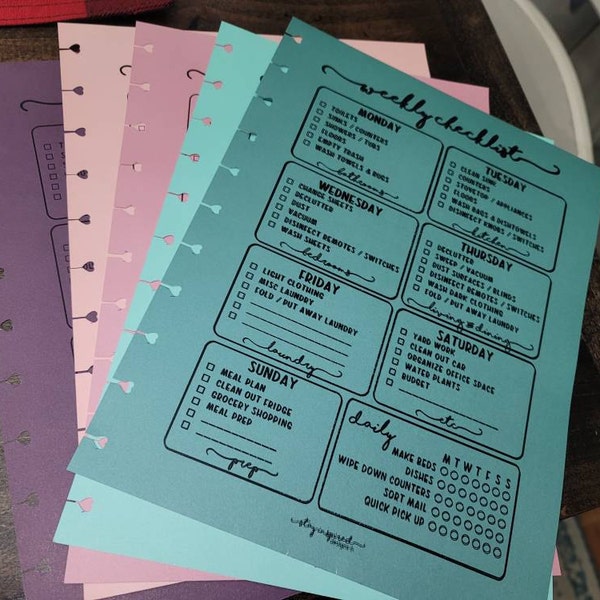 weekly checklist
MONDAY
TOILETS
SINKS / COUNTERS
SHOWERS / TUBS
FLOORS
EMPTY TRASH
WASH TOWELS & RUGS
bathrooms
TUESDAY
CLEAN SINK
COUNTERS
STOVETOP / APPLIANCES
FLOORS
WASH RAGS & DISHTOWELS
DISINFECT KNOBS / SWITCHES
kitchen
WEDNESDAY
CHANGE SHEETS
DECLUTTER
DUST
VACUUM
DISINFECT REMOTES / SWITCHES
WASH SHEETS
bedrooms
THURSDAY
DECLUTTER
SWEEP / VACUUM
DUST SURFACES / BLINDS
DISINFECT REMOTES / SWITCHES
WASH DARK CLOTHING
FOLD / PUT AWAY LAUNDRY
living & dining
FRIDAY
LIGHT CLOTHING
MISC LAUNDRY
FOLD / PUT AWAY LAUNDRY
laundry
SATURDAY
YARD WORK
CLEAN OUT CAR
ORGANIZE OFFICE SPACE
WATER PLANTS
BUDGET
etc
SUNDAY
MEAL PLAN
CLEAN OUT FRIDGE
GROCERY SHOPPING
MEAL PREP
prep
daily
M T W T F S S
MAKE BEDS
DISHES
WIPE DOWN COUNTERS
SORT MAIL
QUICK PICK UP
stay inspired